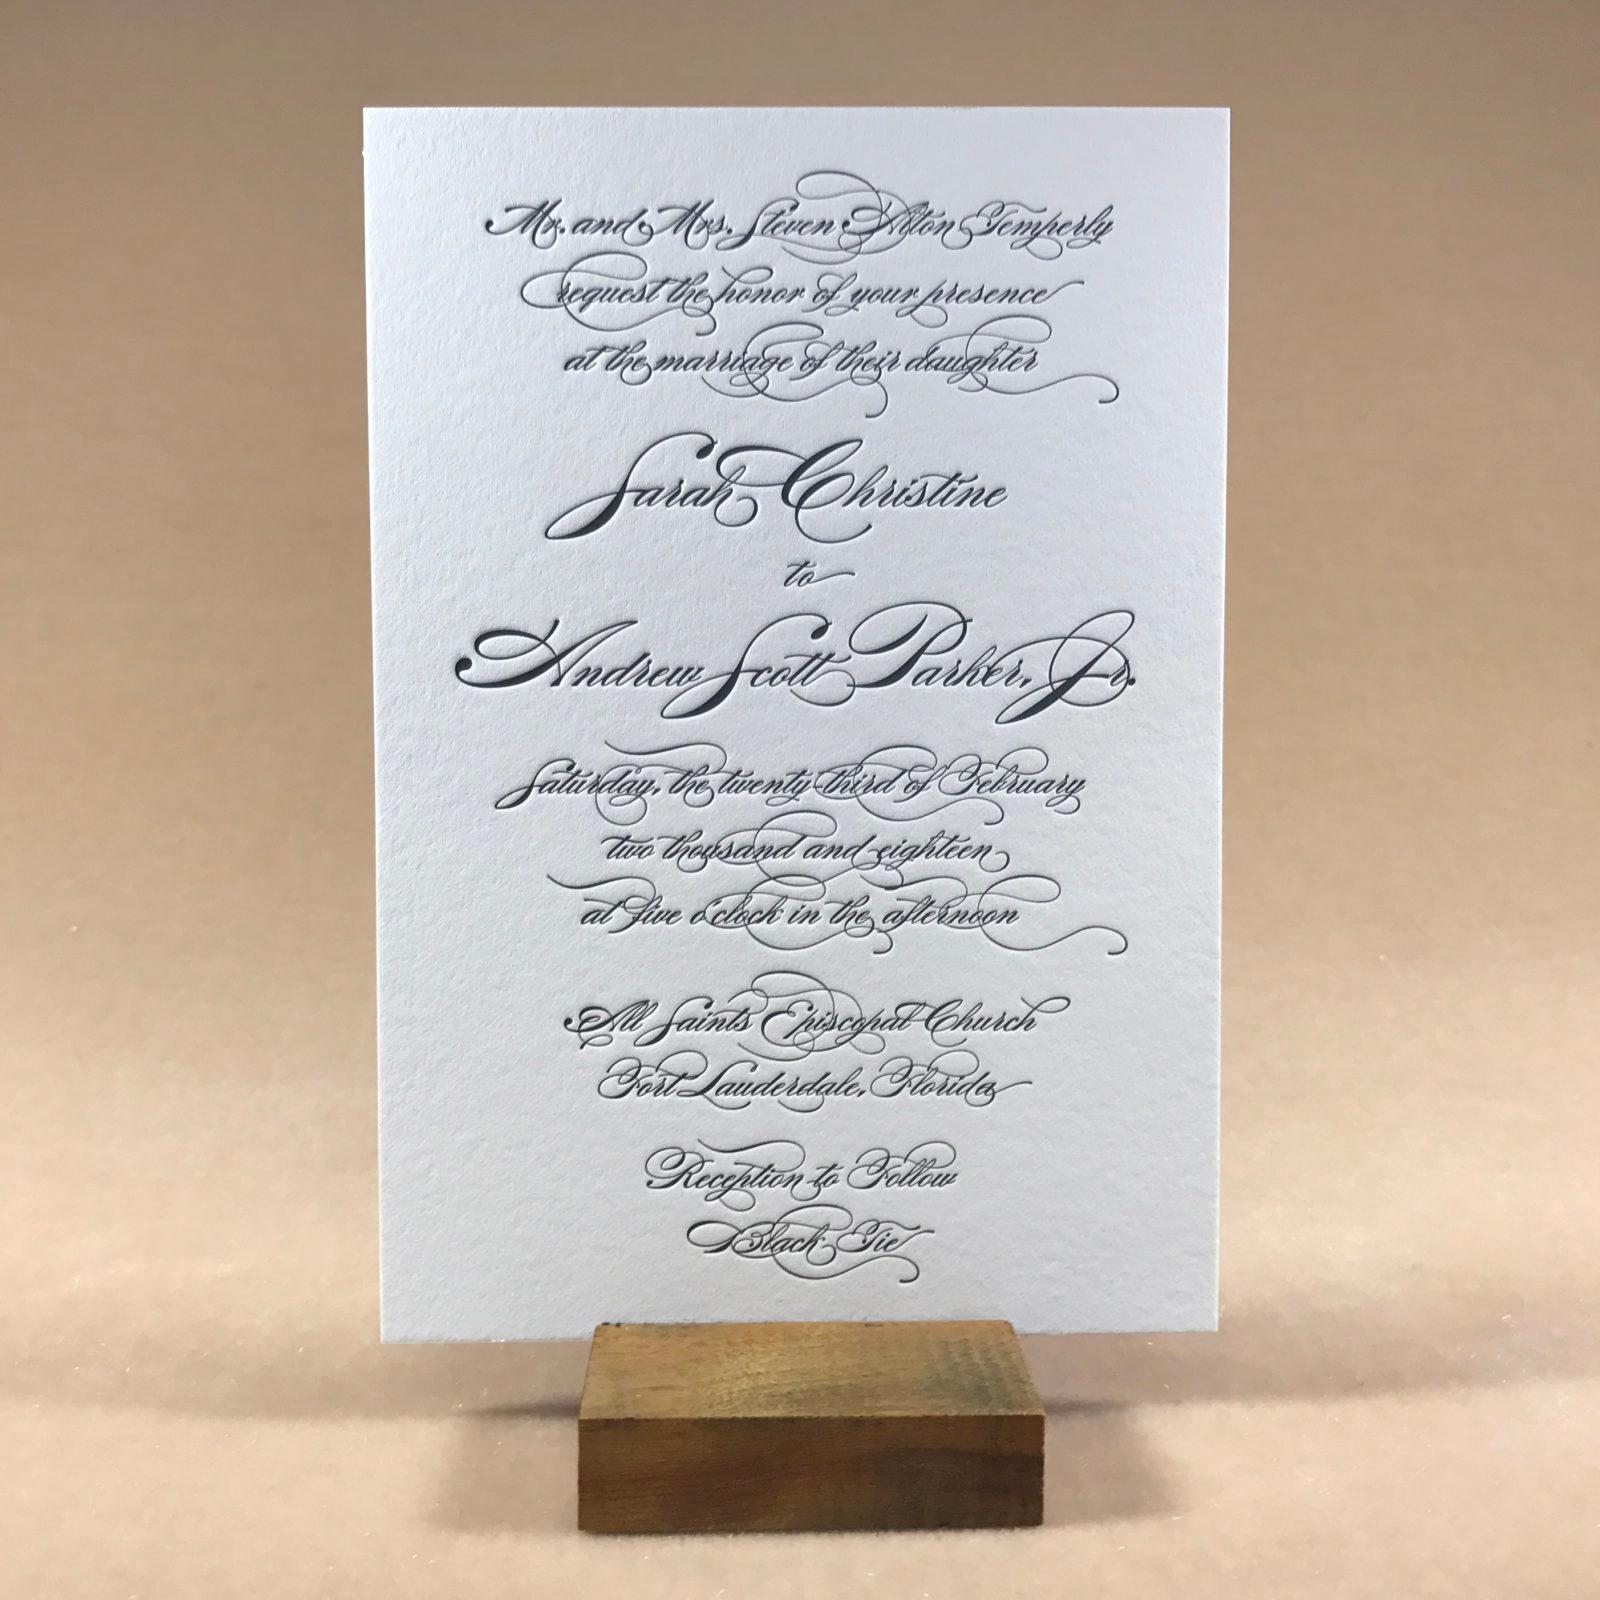 Mr. and Mrs. Steven Alton Temperly
request the honor of your presence
at the marriage of their daughter
Sarah Christine
to
Andrew Scott Parker, Jr.
Saturday, the twenty third of February
two thousand and eighteen
at five o'clock in the afternoon
All Saints Episcopal Church
Fort Lauderdale, Florida
Reception to Follow
Black Tie